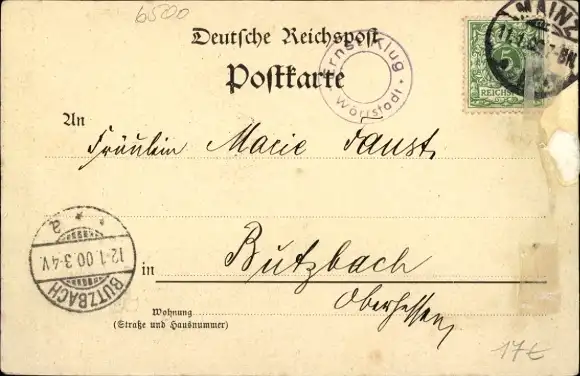 6500
Deutsche Reichspost
Postkarte
Ernst Klug
Wörrstadt
MAINZ
5
REICHSPOST
An
Fräulein Marie Faust,
BUTZBACH
12.1.00.3-4V.
* * a
in Butzbach
Oberhessen,
Wohnung
(Straße und Hausnummer)
17€